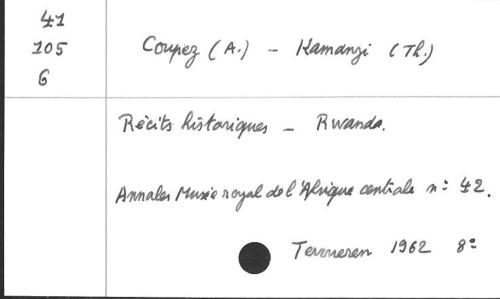 41
105
6
Coupez (A.) – Kamanzi (Th.)
Récits historiques – Rwanda.
Annales Musée royal de l'Afrique centrale n: 42.
Tervueren 1962 8°